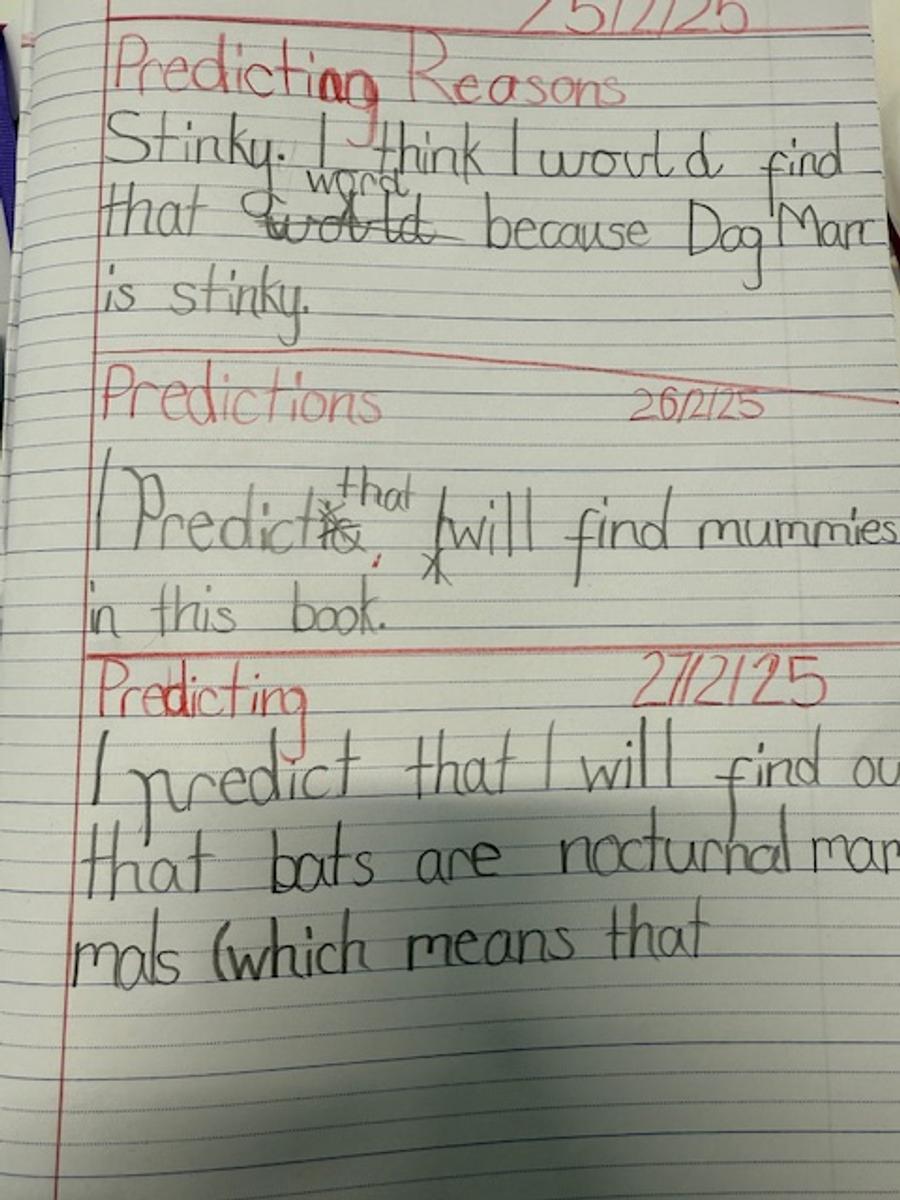 25/2/25
Predicting Reasons
Stinky. I think I would find
word
that would because Dog Man
is stinky.
Predictions 26/2/25
that
I Predict I will find mummies
in this book.
Predicting 27/2/25
I predict that I will find ou
that bats are nocturnal mam
mals (which means that